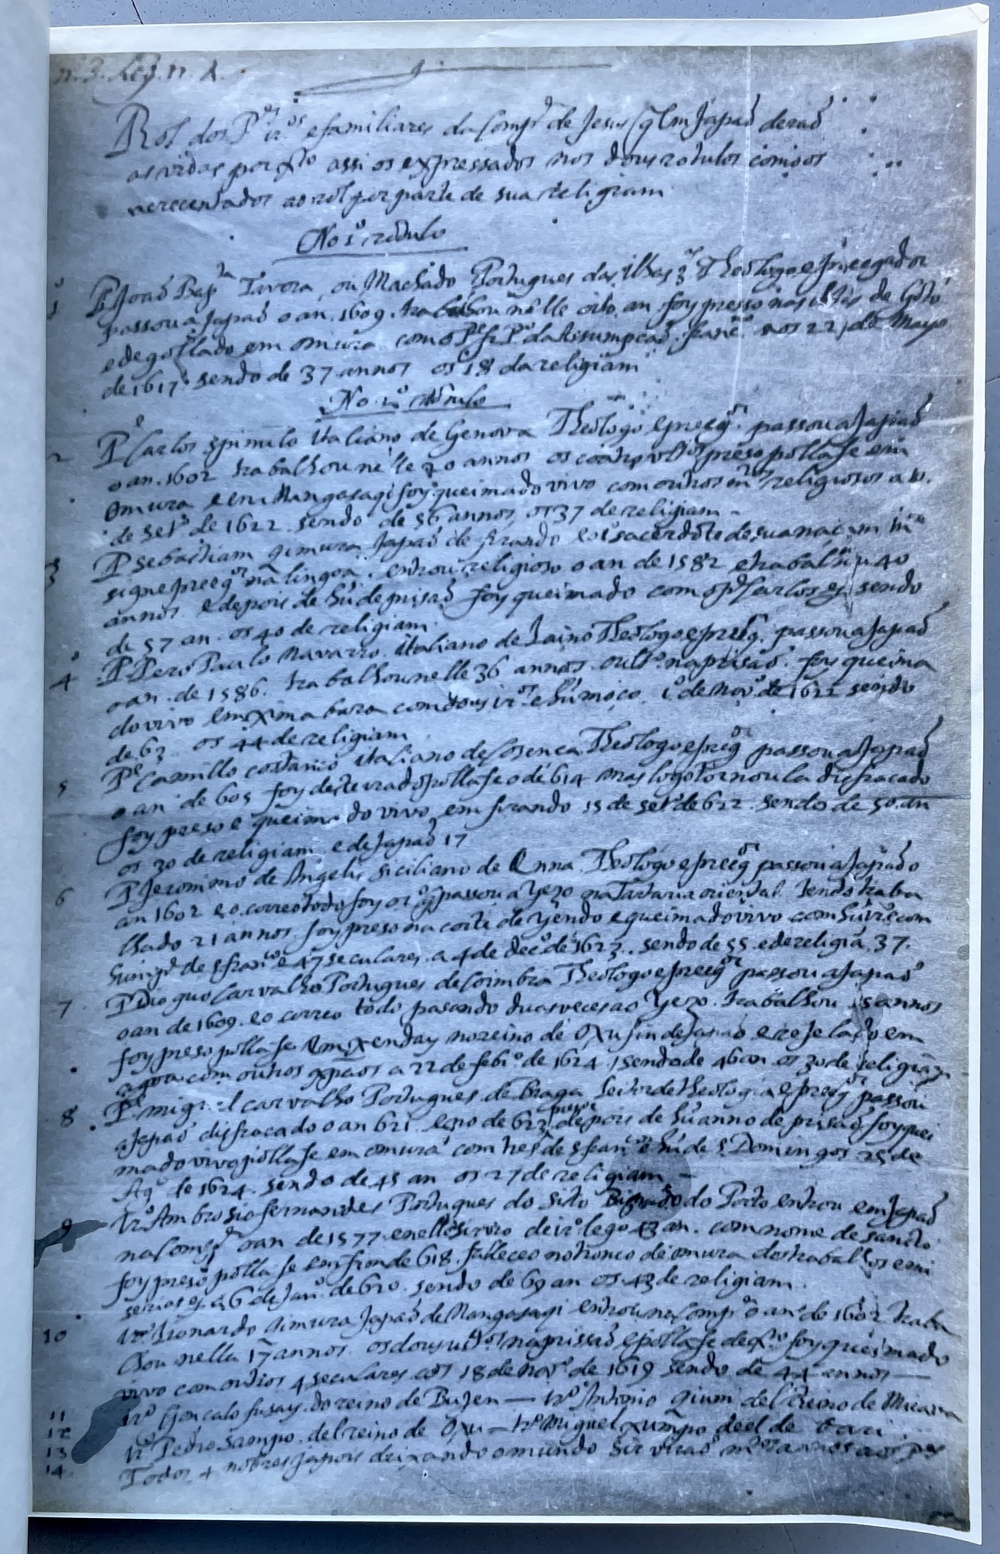 n. 3. Leg. n. 1.
Rol dos P.es ir.os e familiares da Comp.a de Jesus q em Japaõ deraõ
as vidas por xp̃o assi os expressados nos dous rotulos como os
acrecentados ao rol por parte de sua religiam
No 1.o rotulo
1 P. Joaõ Bap.ta Tavora, ou Machado Portugues das Ilhas 3.as Theologo e preegador
passou a Japaõ o an. 1609. trabalhou nelle oito an. foy preso nas Ilhas de Gotó
e degollado em omura com o P.e fr. P.o da Assumpcaõ, fran.co aos 22 de Mayo
de 1617. sendo de 37 annos os 18 da religiam
No 2.o rotulo
2 P.e Carlos Spinulo Italiano de Genova Theologo e preeg.or passou a Japaõ
o an. 1602 trabalhou nelle 20 annos os coatro ult.os preso polla fe em
omura e em Nangasaqi foy queimado vivo com outros m.tos religiosos a 10.
de Set.o de 1622. sendo de 56 annos, os 37 de religiam
3 P. Sebastiam qimura Japaõ de firando e o 1.o sacerdote de sua nacam in
signe preeg.or na lingoa. entrou religioso o an de 1582 e trabalhou 40
annos e depois de hũ de prisaõ foy queimado com o P.e Carlos sendo
de 57 an. os 40 de religiam.
4 P. Pero Paulo Navarro. Italiano de Laino Theologo e preeg. passou a Japaõ
o an. de 1586. trabalhou nelle 36 annos. o ult.o na prisaõ. foy queima
do vivo em ximabara com dous ir.os e hũ moço. 1.o de Nov.o de 1622 sendo
de 63 os 44 de religiam
5 P.e Camillo costanço italiano de Cosenca Theologo e preeg.or passou a Japaõ
o an. de 605 foy desterrado polla fe o de 614 mas logo tornou la disfracado
foy preso e queimado vivo, em firando 15 de Set.o de 622. sendo de 50 an
os 30 de religiam e de Japaõ 17
6 P. Jeronimo de Angelis Siciliano de Enna Theologo e preeg.or passou a Japaõ o
an 1602 e o correo todo foy o 1.o q̃ passou a Yezo na Tartaria oriental. tendo traba
lhado 21 annos. foy preso na corte de Yendo e queimado vivo com hũ ir.o e com
hum p.e de S. fran.co e 47 seculares. a 4 de dec.o de 1623. sendo de 55. e de religiã 37.
7 P. Dioguo Carvalho Portugues de Coimbra Theologo e preeg.or passou a Japaõ
o an de 1609. e o correo todo passando duas vezes ao Yezo. trabalhou 15 annos
foy preso polla fe em xenday no reino de Oxu fin de Japaõ e congelado em
agoa com outros xp̃aos a 22 de feb.o de 1624 sendo de 46 an. os 30 de religiaõ
8 P.e migel carvalho Portugues de Braga Leitor de Theologia e preeg.or passou
a Japaõ disfracado o an 621. e o no de 623 preso depois de hũ anno de prisaõ, foy quei
mado vivo polla fe em omura com tres de S fran.co e hũ de S Domingos 25 de
Ag.o de 1624. sendo de 45 an os 27 de religiam
9 Ir.o Ambrosio fernandes Portugues do Sisto Bispado do Porto entrou em Japaõ
na Comp.a o an de 1577. e nella viveo de ir.o lego 43 an. com nome de sancto.
foy preso polla fe em fin de 618. falleceo no tronco de omura dos trabalhos e mi
serias a 6 de Jan.o de 620. sendo de 69 an os 43 de religiam.
10 Ir.o Lionardo Qimura Japaõ de Nangasaqi entrou na Comp.a o an. de 1602 traba
lhou nella 17 annos. os dous ult.os na prisaõ e polla fe de xp̃o foy queimado
vivo com outros 4 seculares aos 18 de Nov.o de 1619 sendo de 44 annos —
11 Ir.o Goncalo fusay. do reino de Bujen — Ir.o Antonio qiuni del Reino de Micava
12
13 Ir.o Pedro Sampo. del reino de Oxu — Ir.o Miguel xumpo deel de Vari
14 Todos 4 nobres japois deixando o mundo serviraõ m.tos annos aos P.es